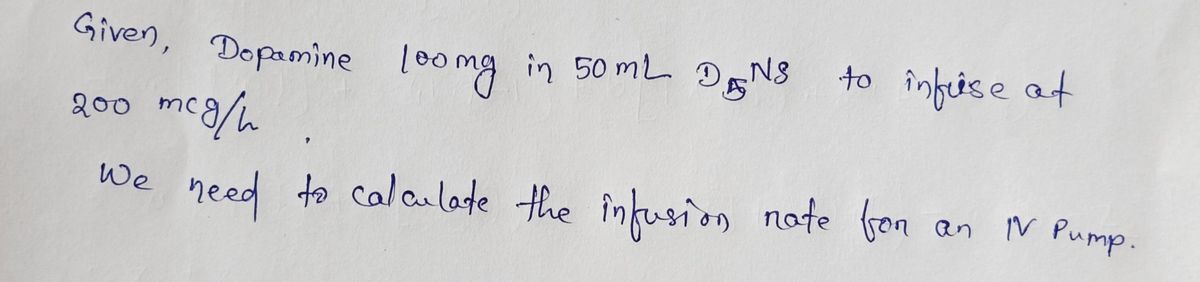 Given, Dopamine 100mg in 50mL D5NS to infuse at
200 mcg/h.
We need to calculate the infusion rate for an IV Pump.